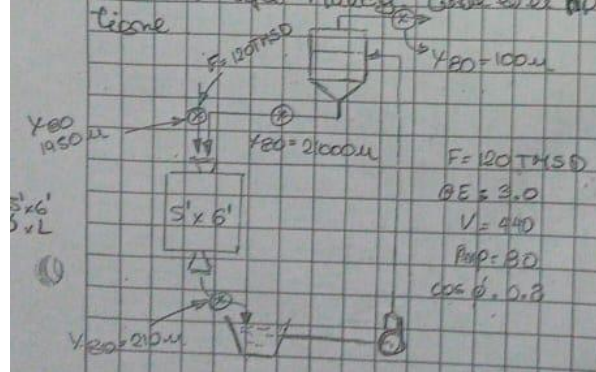 tiene
F=120TMSD
Y80=100µ
Y80
1950µ
Y80=21000µ
5'x6'
F=120TMSD
ØE=3.0
V=440
Amp=80
cos ϕ=0.8
5'x6'
xL
Y80=210µ